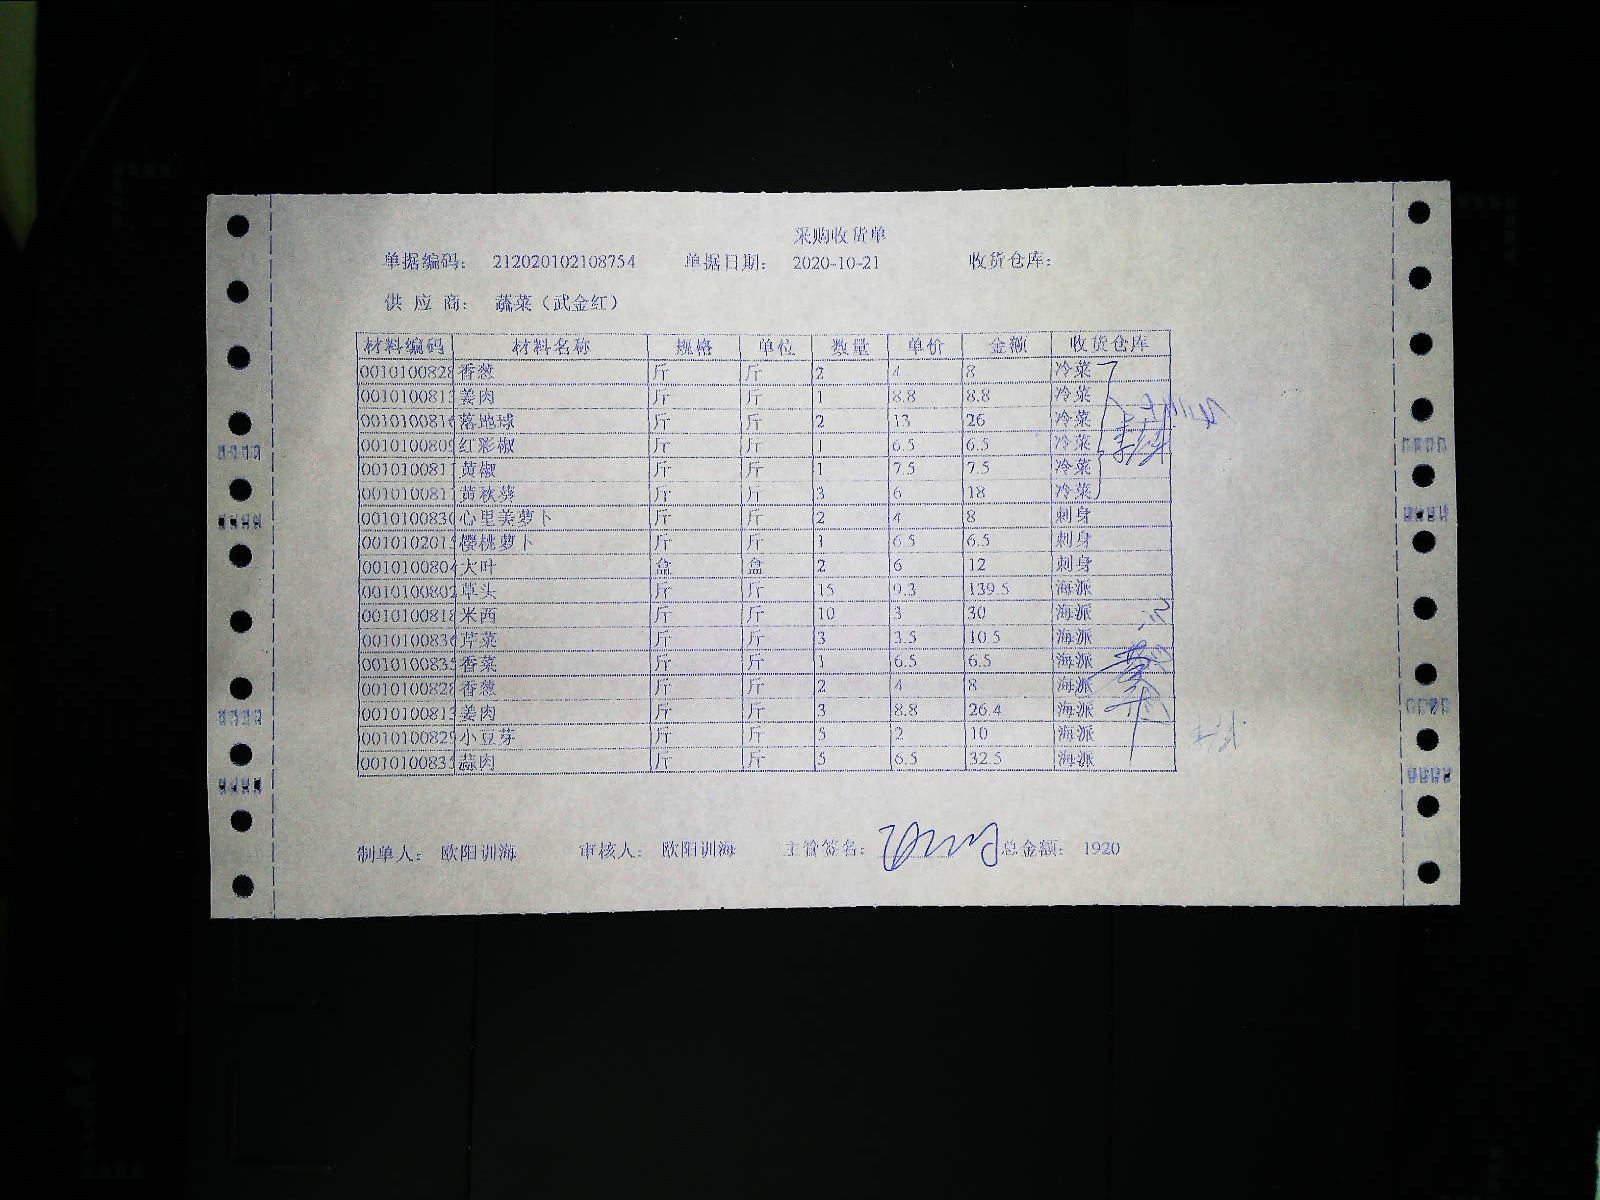 采购收货单
单据编码： 212020102108754 单据日期： 2020-10-21 收货仓库：
供 应 商： 蔬菜（武金红）
材料编码 材料名称 规格 单位 数量 单价 金额 收货仓库
0010100828 香葱 斤 斤 2 4 8 冷菜
0010100813 姜肉 斤 斤 1 8.8 8.8 冷菜
0010100816 落地球 斤 斤 2 13 26 冷菜
0010100809 红彩椒 斤 斤 1 6.5 6.5 冷菜
001010081 黄椒 斤 斤 1 7.5 7.5 冷菜
001010081 黄秋葵 斤 斤 3 6 18 冷菜
0010100830 心里美萝卜 斤 斤 2 4 8 刺身
001010201 樱桃萝卜 斤 斤 1 6.5 6.5 刺身
0010100804 大叶 盒 盒 2 6 12 刺身
0010100802 草头 斤 斤 15 9.3 139.5 海派
0010100818 米西 斤 斤 10 3 30 海派
0010100836 芹菜 斤 斤 3 3.5 10.5 海派
0010100835 香菜 斤 斤 1 6.5 6.5 海派
0010100828 香葱 斤 斤 2 4 8 海派
0010100813 姜肉 斤 斤 3 8.8 26.4 海派
0010100829 小豆芽 斤 斤 5 2 10 海派
001010083 蒜肉 斤 斤 5 6.5 32.5 海派
制单人： 欧阳训海 审核人： 欧阳训海 主管签名： 总金额： 1920